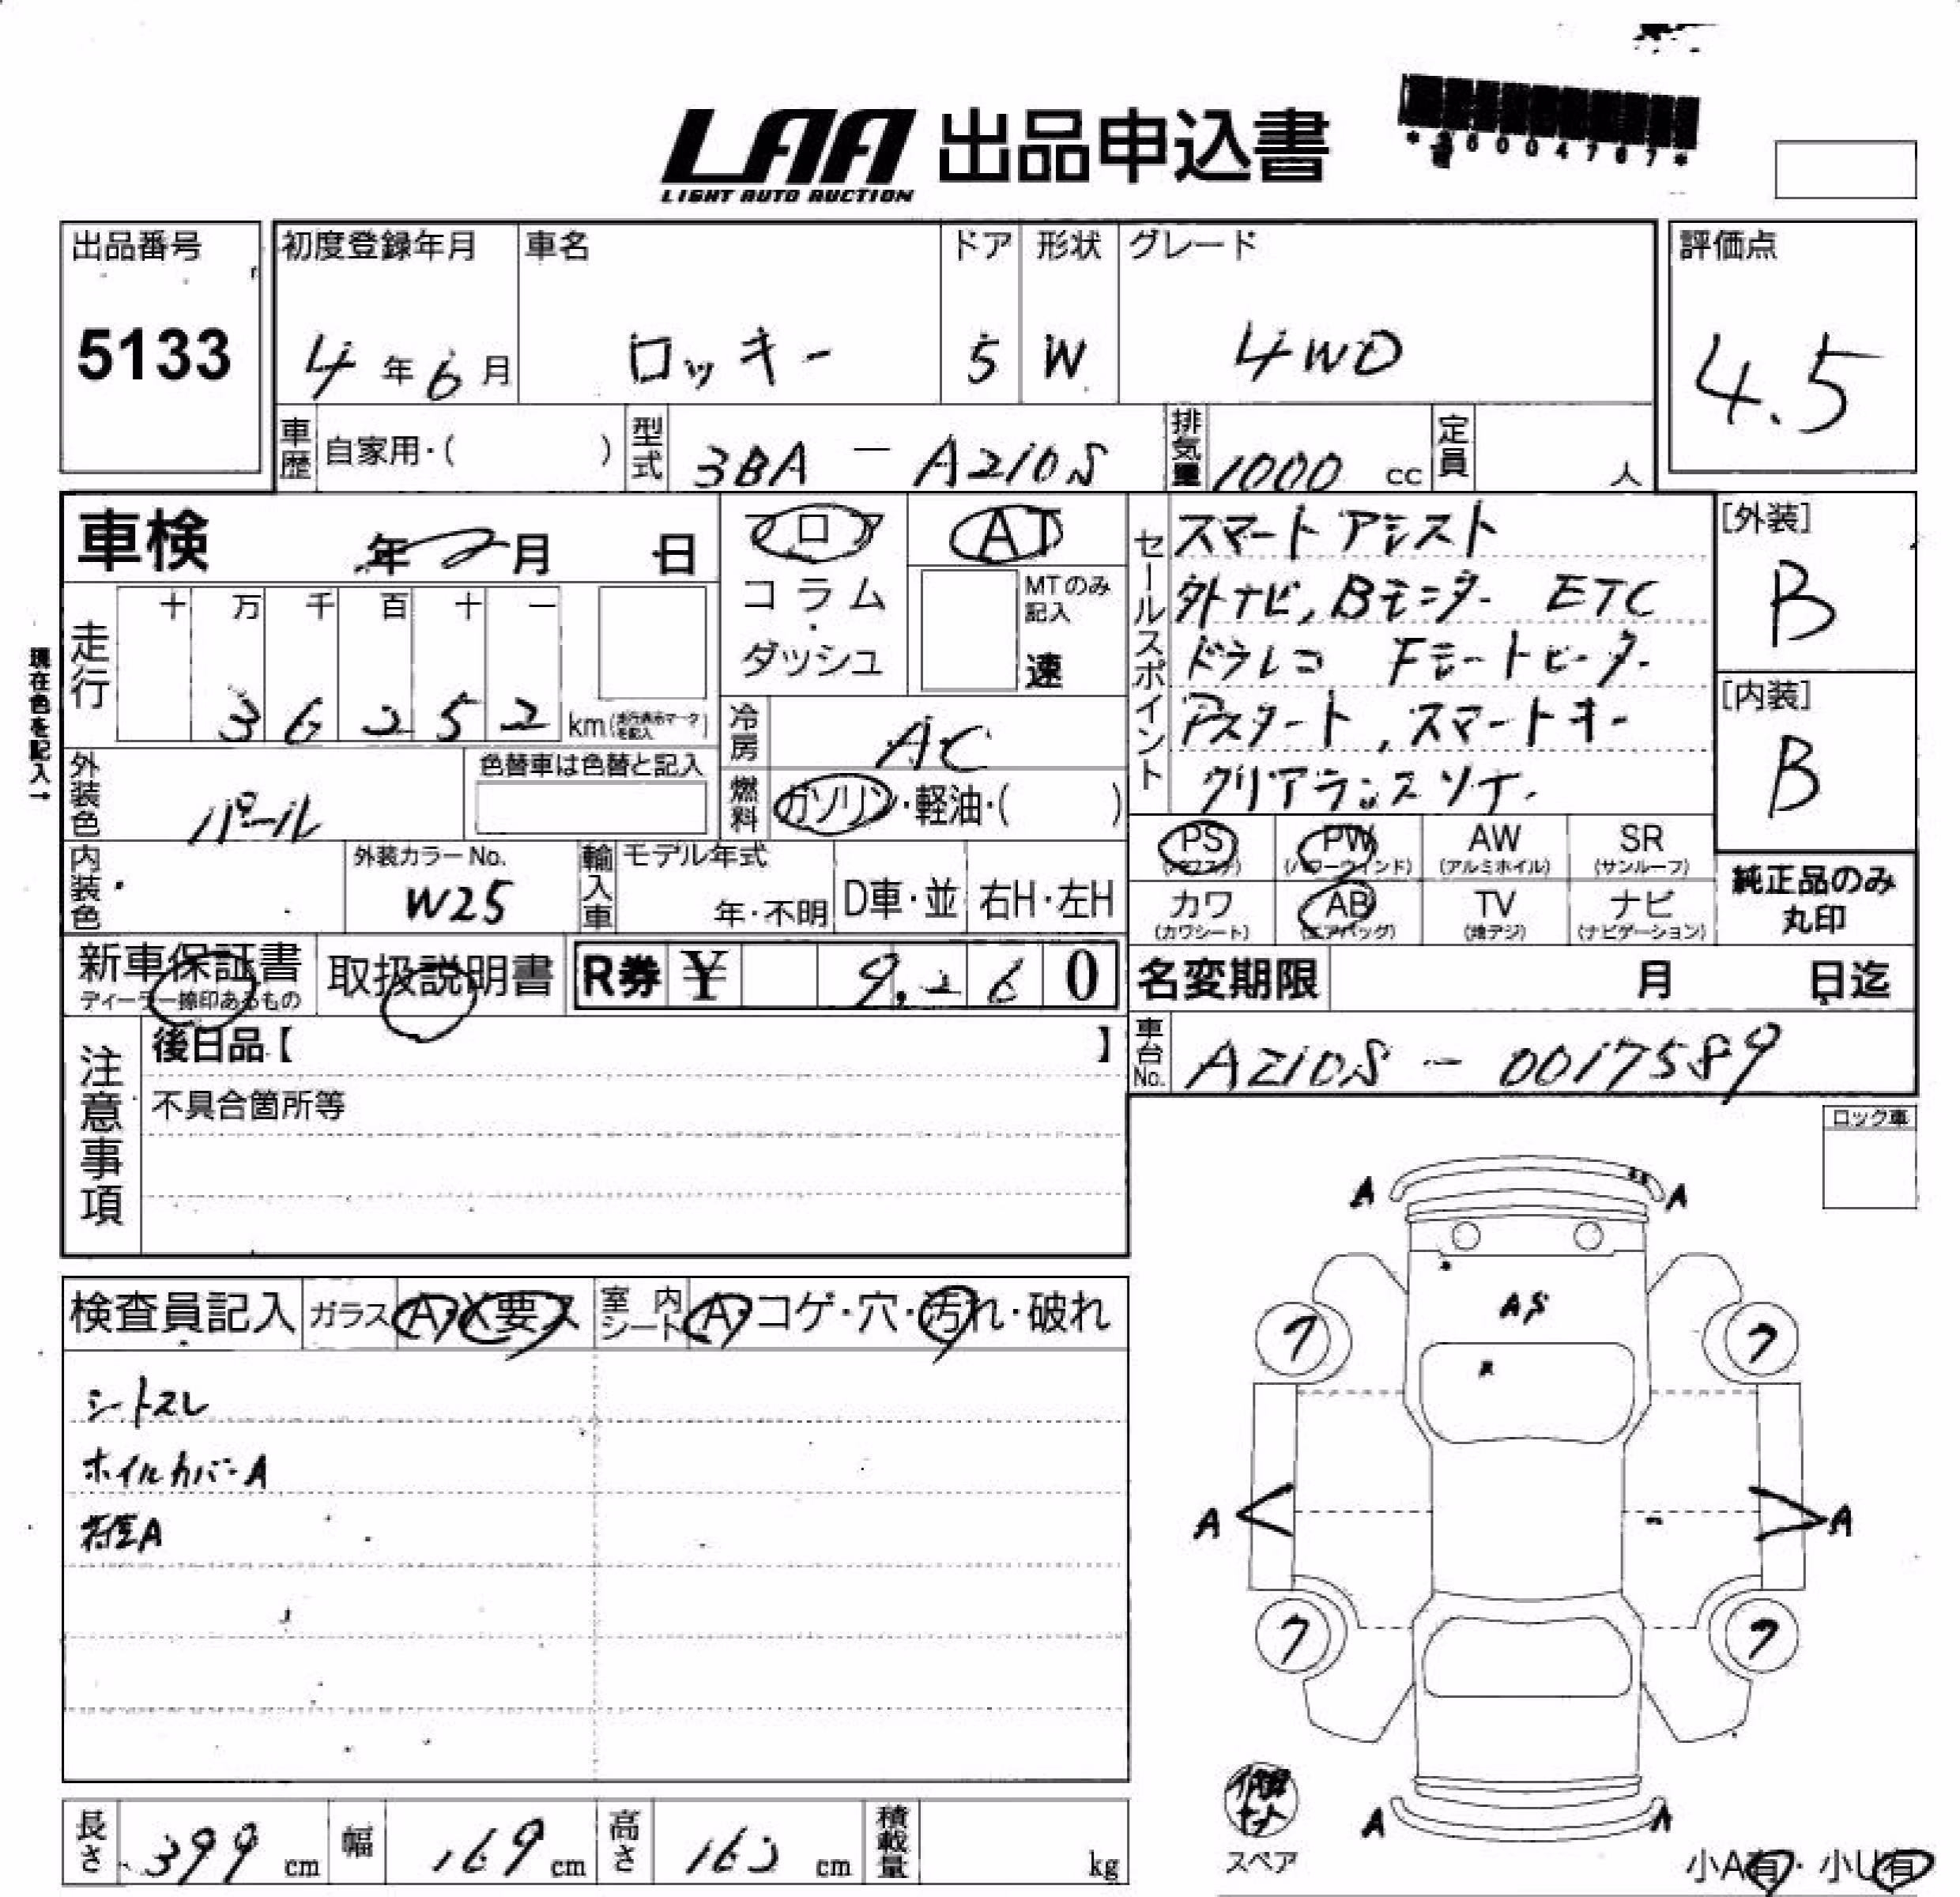 LAA 出品申込書
LIGHT AUTO AUCTION
出品番号
5133
初度登録年月
4年6月
車名
ロッキー
ドア
5
形状
W
グレード
4WD
評価点
4.5
車歴 自家用・( )
型式 3BA - A210S
排気量 1000 cc
定員 人
車検 年 月 日
フロア
コラム
ダッシュ
AT
MTのみ
記入
速
セールスポイント
スマートアシスト
外ナビ, Bモニター ETC
ドラレコ Fシートヒーター
Pスタート, スマートキー
クリアランスソナー
[外装]
B
[内装]
B
現在色を記入→
走行
十 万 千 百 十 一
3 6 2 5 2 km
冷房 AC
燃料 ガソリン・軽油・( )
外装色 パール
色替車は色替と記入
内装色
外装カラーNo.
W25
輸入車
モデル年式
年・不明
D車・並
右H・左H
PS
PW
(パワーウィンド)
AW
(アルミホイル)
SR
(サンルーフ)
カワ
(カワシート)
AB
(エアバッグ)
TV
(地デジ)
ナビ
(ナビゲーション)
純正品のみ
丸印
新車保証書
ディーラー捺印あるもの
取扱説明書
R券 ¥ 9,260
名変期限 月 日迄
車台No. A210S - 0017589
注意事項
後日品【 】
不具合箇所等
ロック車
検査員記入
ガラス A・X要ス
室内シート A・コゲ・穴・汚れ・破れ
シートスレ
ホイルカバーA
A A
AS
7 7
A A
7 7
A A
スペア
小A有・小U有
長さ 399 cm
幅 169 cm
高さ cm
積載量 kg